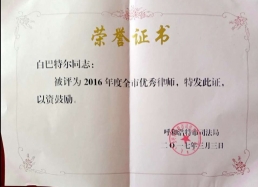 荣誉证书
白巴特尔同志：
被评为2016年度全市优秀律师，特发此证，
以资鼓励。
呼和浩特市司法局
二〇一七年三月三日